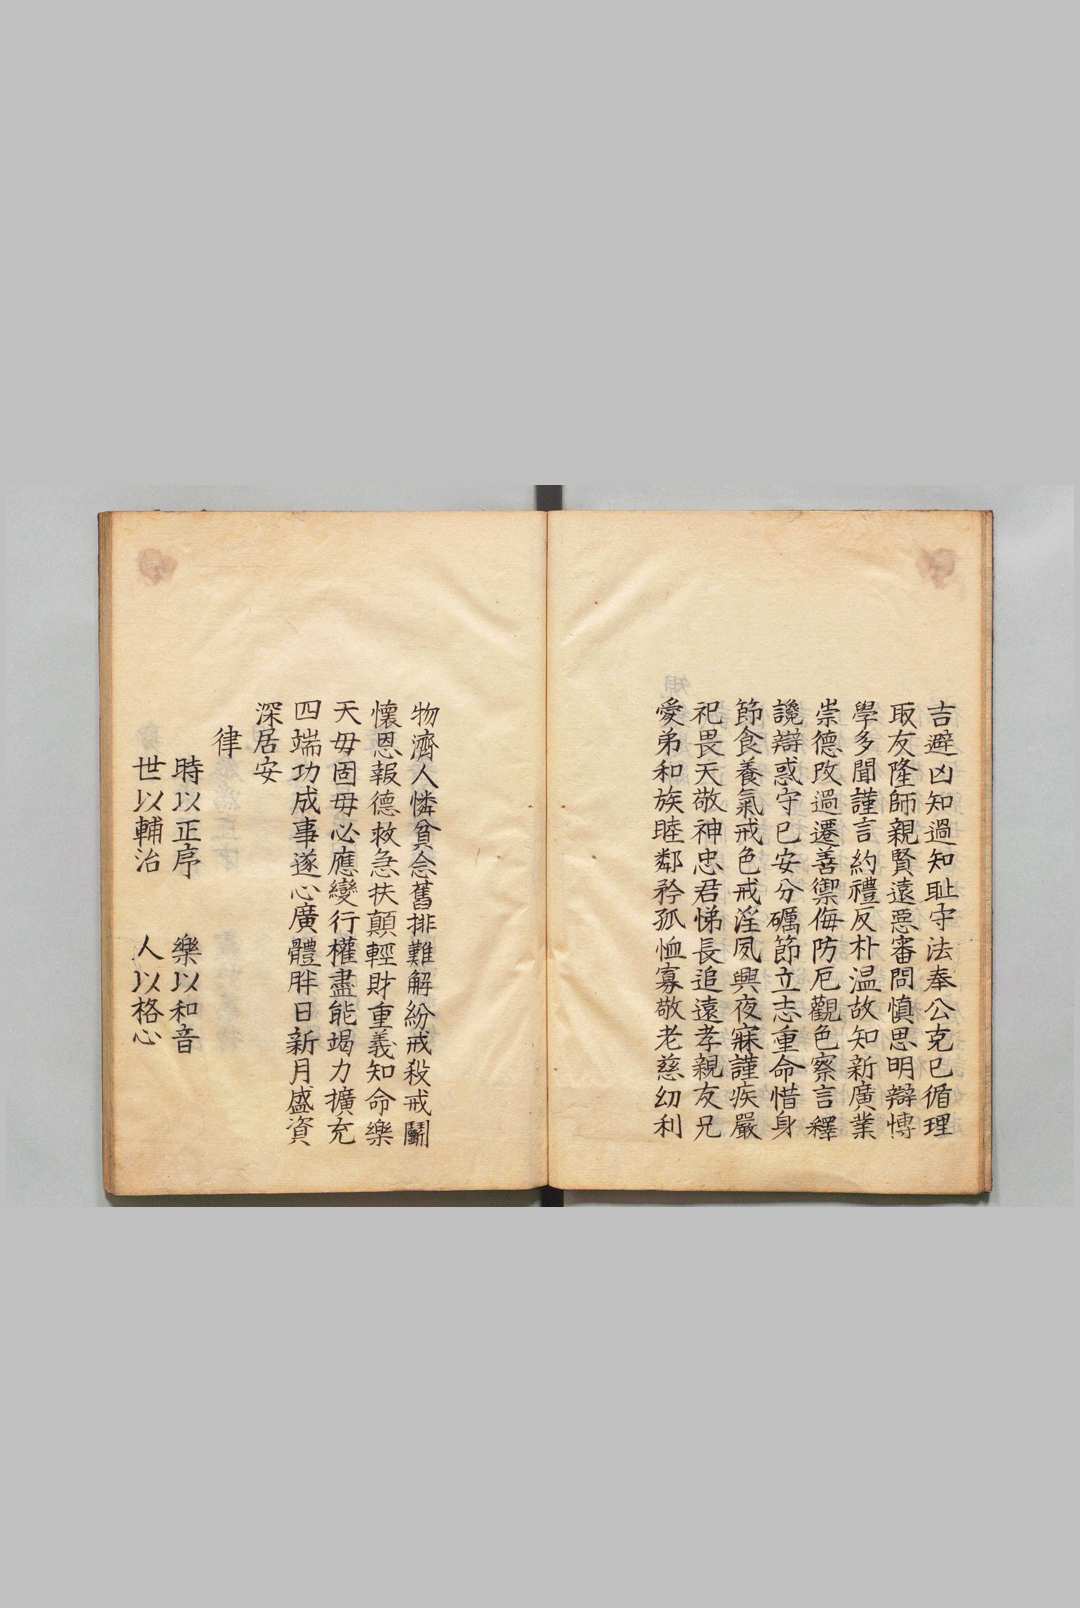 吉避凶知過知耻守法奉公克已循理
取友隆師親賢遠惡審問慎思明辯博
學多聞謹言約禮反朴温故知新廣業
崇德改過遷善禦侮防厄觀色察言釋
讒辯惑守已安分礪節立志重命惜身
節食養氣戒色戒淫夙興夜寐謹疾嚴
祀畏天敬神忠君悌長追遠孝親友兄
愛弟和族睦鄰矜孤恤寡敬老慈幼利
物濟人憐貧念舊排難解紛戒殺戒鬬
懷恩報德救急扶顛輕財重義知命樂
天毋固毋必應變行權盡能竭力擴充
四端功成事遂心廣體胖日新月盛資
深居安
律
時以正序 樂以和音
世以輔治 人以格心